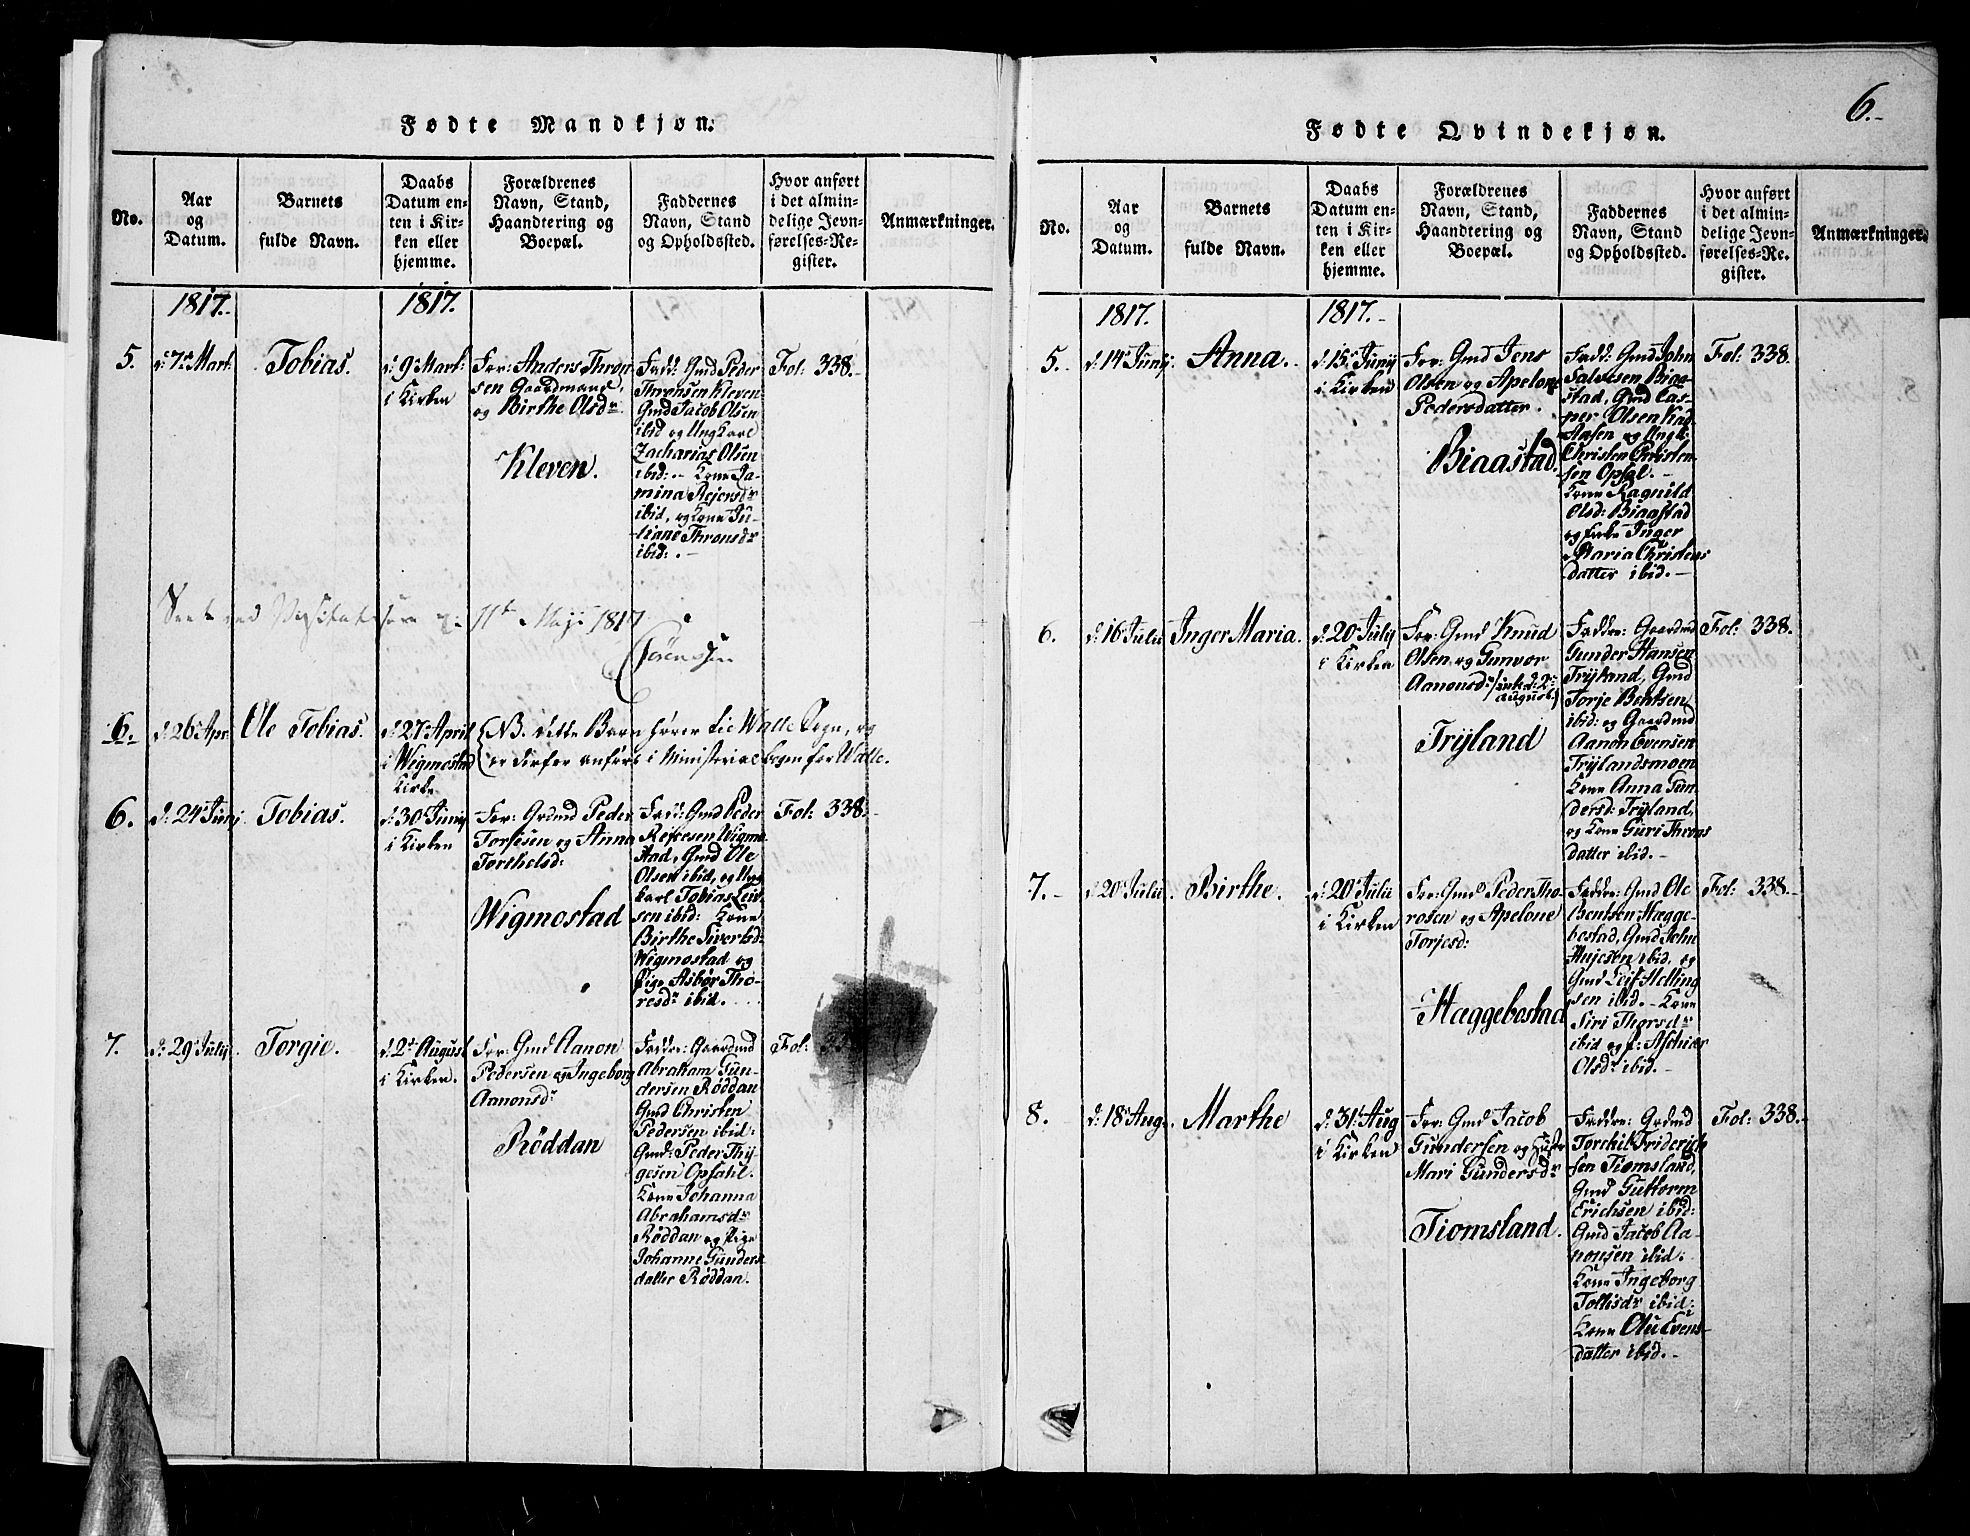 6.-
Fødte Mandkjøn.
No.
Aar
og
Datum.
Barnets
fulde Navn.
Daabs
Datum en-
ten i Kir-
ken eller
hjemme.
Forældrenes
Navn, Stand,
Haandtering og
Boepæl.
Faddernes
Navn, Stand
og Opholdssted.
Hvor anført
i det almin-
delige Jevn-
førelses-Re-
gister.
Anmærkninger.
1817.
1817.
5.
d: 7de Mart
Tobias.
d: 9de Mart
i Kirken
For: Anders Thron
sen Gaardmand,
og Birthe Olsdr
Kleven.
Fadd: Gmd Peder
Thronsen Kleven
Gmd Jacob Olsen
ibid og Ungkarl
Zacharias Olsen
ibid:- Kone Ja-
mina Rejersdr
ibid, og Kone Ju-
liane Thronsdr
ibid:.-
Fol: 338.-
11te Maji 1817
Sørenssen
6.
d: 26 Apr:
Ole Tobias.
d: 27 April
i Wigmostad
Kirke
NB. dette Barn hører til Walle Sogn, og
er derfor anført i Ministerialbogen for Walle.
6.
d: 24 Junj
Tobias.
d: 30 Junij
i Kirken
For: Grdmd Peder
Torjesen og Anna
Torkelsd:
Wigmostad
Fadd: Gmd Peder
Reiersen Wigmo
stad, Gmd Ole
Olsen ibid, og Ung
karl Tobias Leif
sen ibid: Kone
Birthe Sivertsd:
Wigmostad og
Pige Asbør Tho-
resdr ibid.
Fol: 338.-
7.
d: 29 Julij
Torgie.
d: 2d August
i Kirken.
For: Gmd Aanon
Pedersen og Ingeborg
Aanonsdr
Røddan
Faddre: Gaardmd
Abraham Gun-
dersen Røddan
Gmd Christen
Pedersen ibid:
Gmd: Peder Thy-
gesen Opsahl.
Kone Johanna
Abrahamsdr
Røddan og Pige
Johanne Gunders
datter Røddan.
Fol:
Fødte Qvindekjøn.
No.
Aar
og
Datum.
Barnets
fulde Navn.
Daabs
Datum en-
ten i Kir-
ken eller
hjemme.
Forældrenes
Navn, Stand,
Haandtering og
Boepæl.
Faddernes
Navn, Stand
og Opholdssted.
Hvor anført
i det almin-
delige Jevn-
førelses-Re-
gister.
Anmærkninger.
1817.
1817.-
5.-
d: 14 Junij
Anna.
d: 15 Junij
i Kirken
For: Gmd Jens
Olsen og Apelone
Pedersdatter.
Biaastad.
Fadd: Gmd John
Salvesen Biaa-
stad, Gmd Cas-
per Olsen
Aasen og Ungk:
Christen Christen-
sen Opsal.-
Kone Ragnild
Olsd: Biaastad
og Inger
Maria Christens
datter ibid.-
Fol: 338.
6.
d: 16 Julii
Inger Maria.
d: 20 Julij
i Kirken
For: Gmd Knud
Olsen og Gunvor
Aanonsdr
August
Trijland
Faddre: Gaardmd
Gunder Hansen
Trijland, Gmd
Torje Bentsen
ibid: og Gaardmd
Aanon Evensen
Trijlandsmoen
Kone Anna Gun
dersd: Trijland,
og Kone Guri Throns
datter ibid.-
Fol: 338.
7.-
d: 20 Julii
Birthe.
d: 20 Julii
i Kirken
For: Gmd Peder Tho-
rosen og Apelone
Torjesd:
Hæggebostad
Faddre: Gmd Ole
Bentsen Hægge-
bostad, Gmd John
ibid, og
Gmd Leif Melling
sen ibid.- Kone
Siri Thorsdr
ibid og
Olsdr ibid.-
Fol: 338.-
8.
d: 18 Aug.
Marthe
d: 31 Aug
i Kirken
For: Gmd Jacob
Gundersen og Hustr
Mari Gundersdr
Tiomsland.
Faddre: Grdmd
Torchil Friderich
sen Tiomsland,
Gmd Guttorm
Erichsen ibid:
Gmd Jacob Aa-
nonsen ibid:
Kone Ingeborg
Tollisdr ibid:
Kone Olu Evens-
datter ibid.-
Fol: 338.-